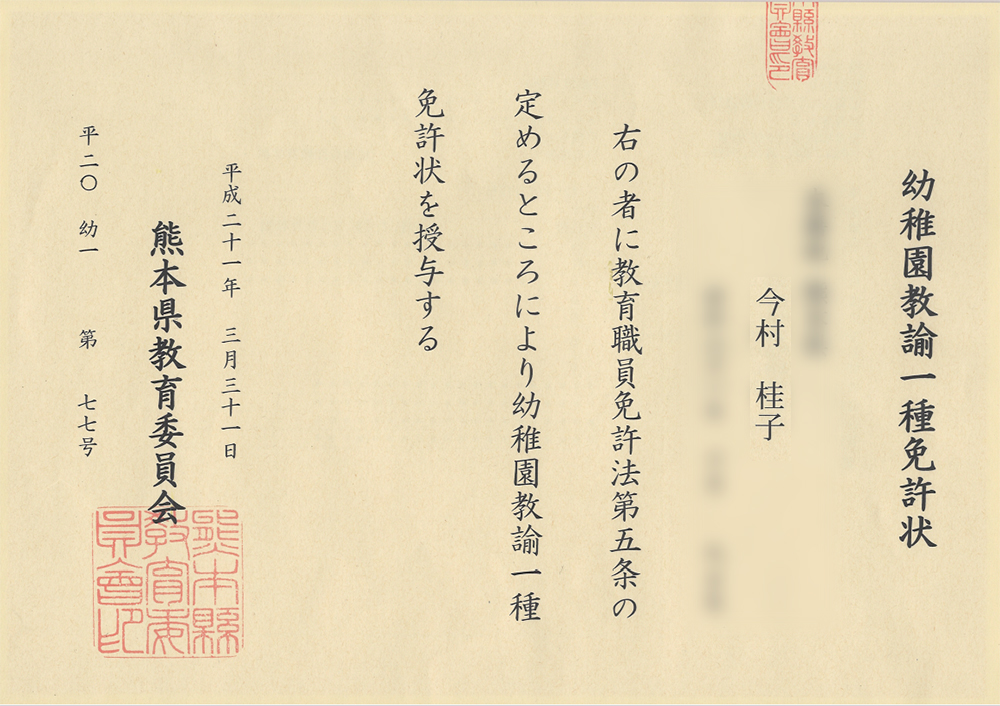 幼稚園教諭一種免許状
今村 桂子
右の者に教育職員免許法第五条の
定めるところにより幼稚園教諭一種
免許状を授与する
平成二十一年 三月三十一日
熊本県教育委員会
平二〇 幼一 第 七七号
熊本縣
教育委
員會印